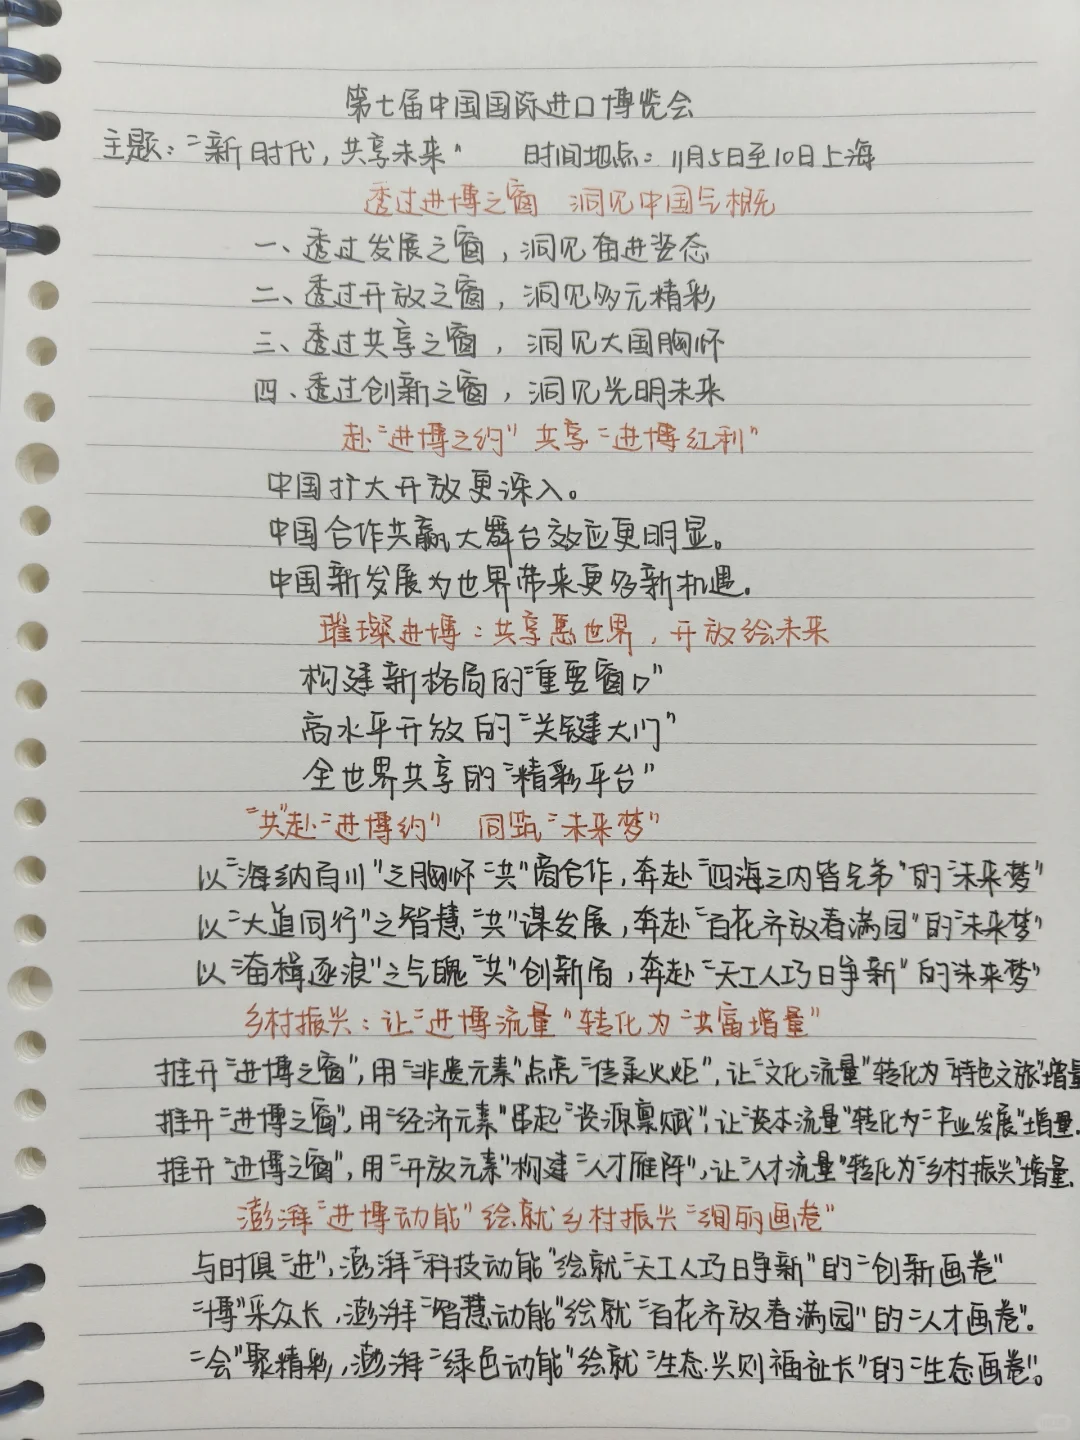 第七届中国国际进口博览会
主题："新时代,共享未来" 时间地点：11月5日至10日上海
透过进博之窗 洞见中国气概
一、透过发展之窗,洞见奋进姿态
二、透过开放之窗,洞见多元精彩
三、透过共享之窗,洞见大国胸怀
四、透过创新之窗,洞见光明未来
赴"进博之约"共享"进博红利"
中国扩大开放更深入。
中国合作共赢大舞台效应更明显。
中国新发展为世界带来更多新机遇.
璀璨进博：共享惠世界,开放绘未来
构建新格局的"重要窗口"
高水平开放的"关键大门"
全世界共享的"精彩平台"
"共"赴"进博约" 同甄"未来梦"
以"海纳百川"之胸怀"共"商合作,奔赴"四海之内皆兄弟"的"未来梦"
以"大道同行"之智慧"共"谋发展,奔赴"百花齐放春满园"的"未来梦"
以"奋楫逐浪"之气魄"共"创新局,奔赴"天工人巧日争新"的"未来梦"
乡村振兴：让"进博流量"转化为"共富增量"
推开"进博之窗",用"非遗元素"点亮"传承火炬",让"文化流量"转化为"特色文旅"增量
推开"进博之窗",用"经济元素"串起"资源禀赋",让"资本流量"转化为"产业发展"增量.
推开"进博之窗",用"开放元素"构建"人才雁阵",让"人才流量"转化为"乡村振兴"增量.
澎湃"进博动能"绘就乡村振兴"绚丽画卷"
与时俱"进",澎湃"科技动能"绘就"天工人巧日争新"的"创新画卷"
"博"采众长,澎湃"智慧动能"绘就"百花齐放春满园"的"人才画卷".
"会"聚精彩,澎湃"绿色动能"绘就"生态兴则福祉长"的"生态画卷"。